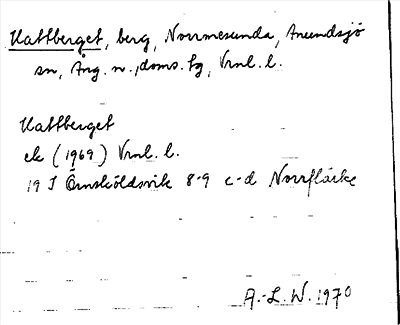 Kattberget, berg, Norrmesunda, Anundsjö
sn, Ång. n., doms. fg, Vrnl. l.
Kattberget
ek (1969) Vrnl. l.
19 J Örnsköldsvik 8-9 c-d Norrflärke
A.-L. W. 1970